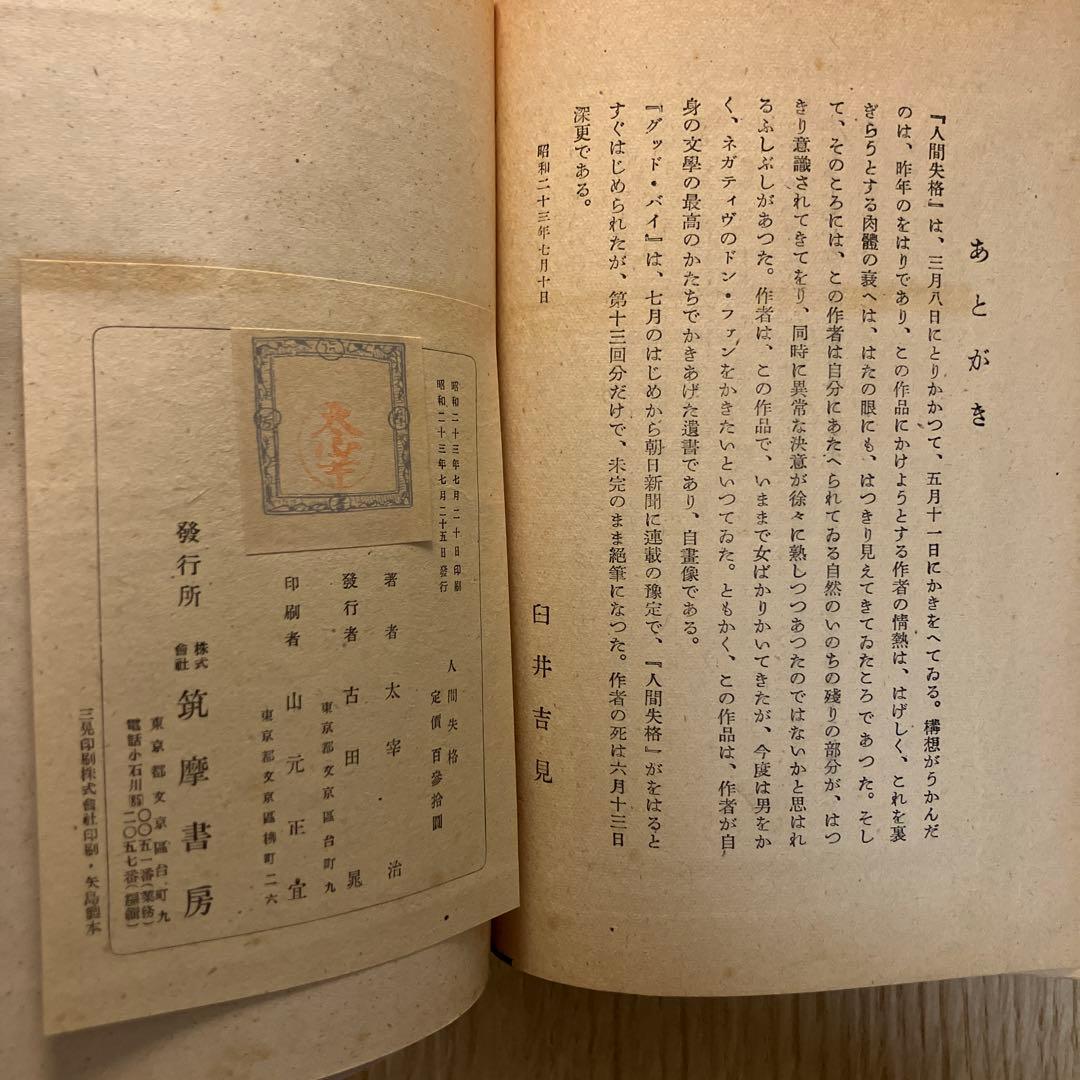 あとがき
『人間失格』は、三月八日にとりかかつて、五月十一日にかきをへてゐる。構想がうかんだ
のは、昨年のをはりであり、この作品にかけようとする作者の情熱は、はげしく、これを裏
ぎらうとする肉體の衰へは、はたの眼にも、はつきり見えてきてゐたころであつた。そし
て、そのころには、この作者は自分にあたへられてゐる自然のいのちの残りの部分が、はつ
きり意識されてきてをり、同時に異常な決意が徐々に熟しつつあつたのではないかと思はれ
るふしぶしがあつた。作者は、この作品で、いままで女ばかりかいてきたが、今度は男をか
く、ネガティヴのドン・ファンをかきたいといつてゐた。ともかく、この作品は、作者が自
身の文學の最高のかたちでかきあげた遺書であり、自畫像である。
『グッド・バイ』は、七月のはじめから朝日新聞に連載の豫定で、『人間失格』がをはると
すぐはじめられたが、第十三回分だけで、未完のまま絶筆になつた。作者の死は六月十三日
深更である。
昭和二十三年七月十日
臼井吉見
昭和二十三年七月二十日印刷
昭和二十三年七月二十五日發行
人間失格
定價百參拾圓
著者 太宰治
發行者 古田晁
東京都文京區台町九
印刷者 山元正宜
東京都文京區柳町二六
發行所 株式會社 筑摩書房
東京都文京區台町九
電話小石川
〇〇五一番(業務)
二〇五七番(編輯)
三晃印刷株式會社印刷・矢島製本